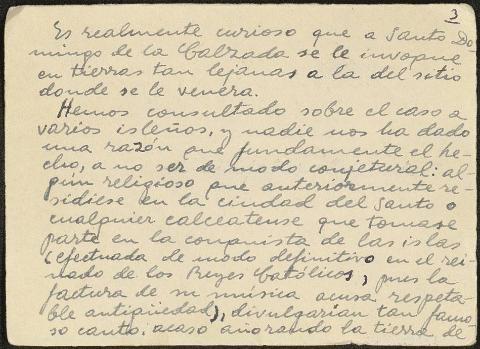 3
Es realmente curioso que a Santo Do-
mingo de la Calzada se le invoque
en tierras tan lejanas a la del sitio
donde se le venera.
Hemos consultado sobre el caso a
varios isleños, y nadie nos ha dado
una razón que fundamente el he-
cho, a no ser de modo conjetural: al-
gún religioso que anteriormente re-
sidiese en la ciudad del Santo o
cualquier calceatense que tomase
parte en la conquista de las islas
(efectuada de modo definitivo en el rei-
nado de los Reyes Católicos, pues la
factura de su música acusa respeta-
ble antigüedad), divulgarían tan famo-
so canto: acaso añorando la tierra de